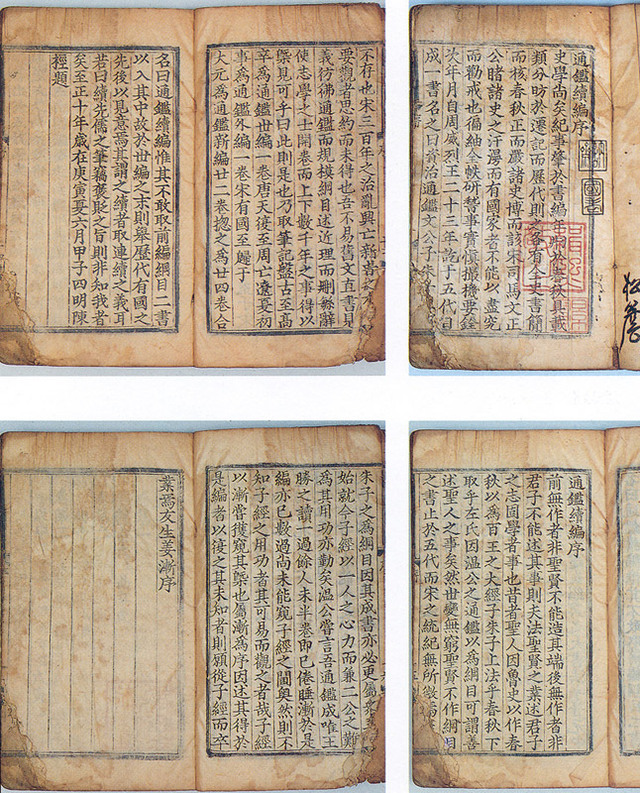 通鑑續編序
史學尚矣紀事肇於書編年昉於春秋具載
類分昉於遷記而歷代則又各有全史書簡
而核春秋正而嚴諸史博而該宋司馬文正
公睹諸史之汗漫而有國家者不能以盡究
而勸戒也徧紬全帙研事實愼撮機要銓
次年月自周威烈王二十三年訖于五代目
成一書名之曰資治通鑑文公子朱
不存也宋三百年之治亂興亡新書
要觀者思約而未得也吾不易書文直書見
義彷彿通鑑而規模綱目述近理而刪緐辭
使志學之士開卷而上下數千年之事得以
槩見可乎曰此則是也乃取筆記盤古至高
辛為通鑑世編一卷唐天復至周亡遼夏初
事為通鑑外編一卷宋有國至歸于
大元為通鑑新編廿二卷揔之為廿四卷合
名曰通鑑續編惟其不敢取前編綱目二書
以入其中故於世編之末則舉歷代有國之
先後以見意焉其謂之續者取連續之義耳
若曰續先儒之筆竊褒貶之旨則非知我者
矣至正十年歲在庚寅夏六月甲子四明陳
桱題
通鑑續編序
前無作者非聖賢不能造其端後無作者非
君子不能述其事則夫法聖賢之業述君子
之志固學者事也昔者聖人因魯史以作春
秋以為百王之大經子朱子上法乎春秋下
取乎左氏因溫公之通鑑以為綱目可謂善
述聖人之事矣然世變無窮聖賢不作綱目
之書止於五代而宋之統紀無所徵焉
朱子之為綱目因其成書亦必更屬
始就今子經以一人之心力而兼二公之難
為其用功亦勤矣溫公嘗言吾通鑑成唯王
勝之讀一過餘人未半卷即已倦睡漸於是
編亦已數過尚未能窺子經之閫奧然則不
知子經之用功者其可易而觀之者哉子經
以漸嘗獲窺其槩也屬漸為序因述其得於
是編者以復之其未知者則願從子經而卒
業焉友生姜漸序